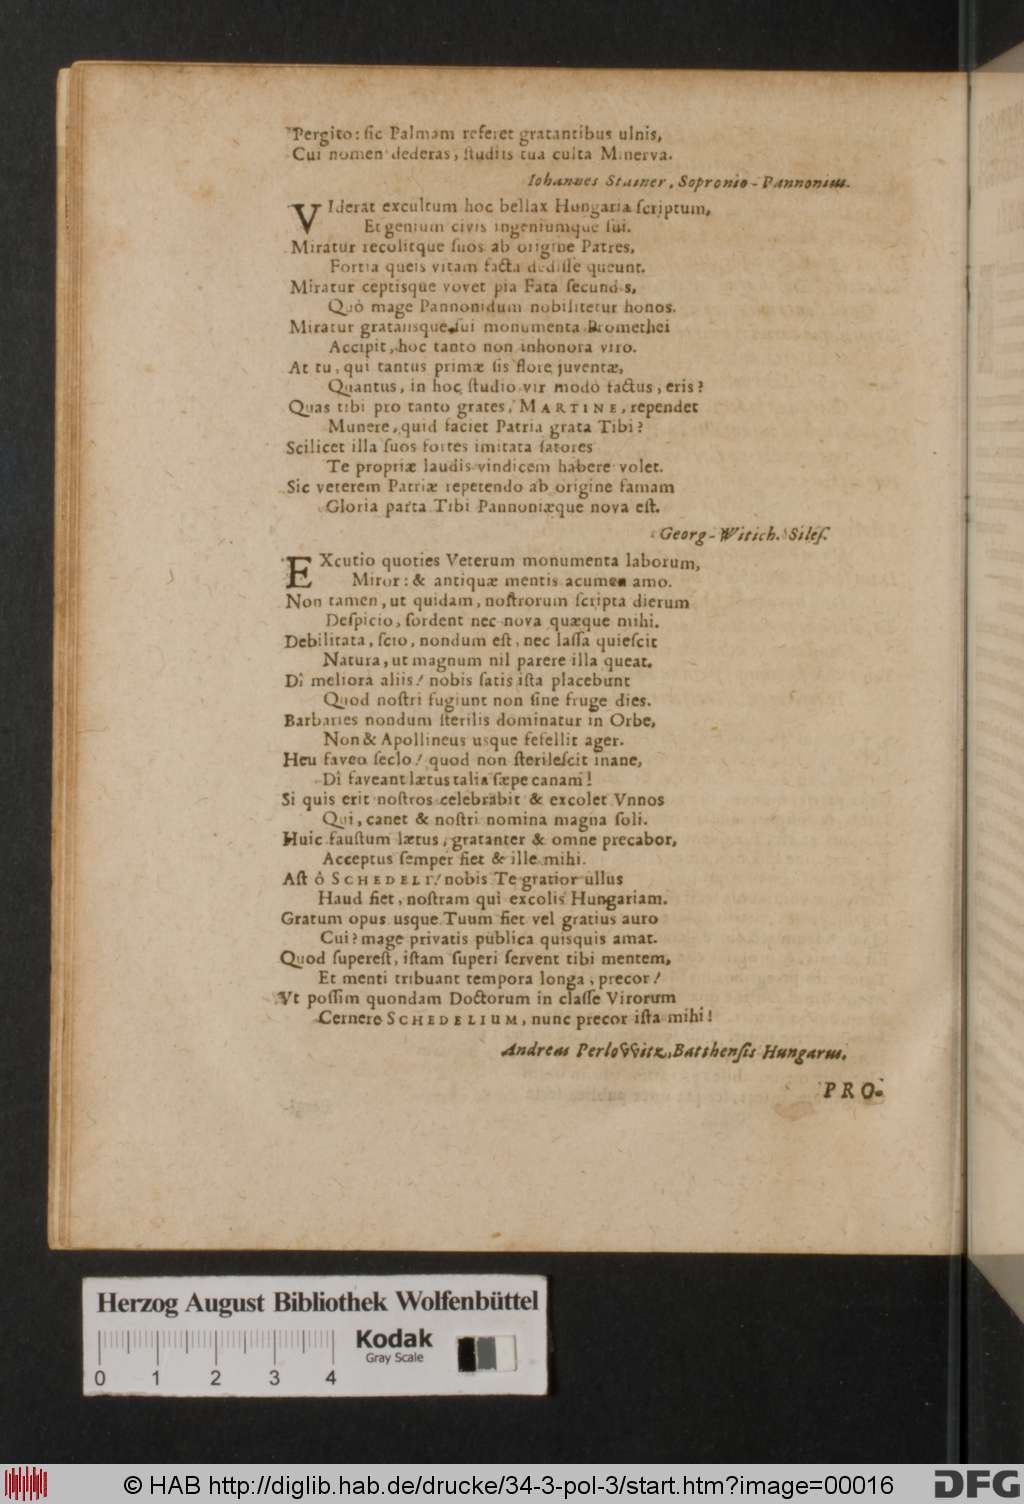 Pergito: ſic Palmam referet gratantibus ulnis,
Cui nomen dederas, ſtudiis tua culta Minerva.
Iohannes Stainer, Sopronio-Pannonius.
VIderat excultum hoc bellax Hungaria ſcriptum,
Et genium civis ingeniumque ſui.
Miratur recolitque ſuos ab origine Patres,
Fortia queis vitam facta dediſſe queunt.
Miratur ceptisque vovet pia Fata ſecundis,
Quò mage Pannonidum nobilitetur honos.
Miratur gratansque ſui monumenta Promethei
Accipit, hoc tanto non inhonora viro.
At tu, qui tantus primæ ſis flore juventæ,
Quantus, in hoc ſtudio vir modò factus, eris?
Quas tibi pro tanto grates, MARTINE, rependet
Munere, quid faciet Patria grata Tibi?
Scilicet illa ſuos fortes imitata ſatores
Te propriæ laudis vindicem habere volet.
Sic veterem Patriæ repetendo ab origine famam
Gloria parta Tibi Pannoniæque nova eſt.
Georg-Witich. Sileſ.
EXcutio quoties Veterum monumenta laborum,
Miror: & antiquæ mentis acumen amo.
Non tamen, ut quidam, noſtrorum ſcripta dierum
Deſpicio, ſordent nec nova quæque mihi.
Debilitata, ſcio, nondum eſt, nec laſſa quieſcit
Natura, ut magnum nil parere illa queat.
Dî meliora aliis! nobis ſatis iſta placebunt
Quod noſtri fugiunt non ſine fruge dies.
Barbaries nondum ſterilis dominatur in Orbe,
Non & Apollineus usque fefellit ager.
Heu faveo ſeclo! quod non ſterileſcit inane,
Dî faveant lætus talia ſæpe canam!
Si quis erit noſtros celebrabit & excolet Vnnos
Qui, canet & noſtri nomina magna ſoli.
Huic fauſtum lætus, gratanter & omne precabor,
Acceptus ſemper fiet & ille mihi.
Aſt ô SCHEDELI! nobis Te gratior ullus
Haud fiet, noſtram qui excolis Hungariam.
Gratum opus usque Tuum fiet vel gratius auro
Cui? mage privatis publica quisquis amat.
Quod ſupereſt, iſtam ſuperi ſervent tibi mentem,
Et menti tribuant tempora longa, precor!
Vt poſſim quondam Doctorum in claſſe Virorum
Cernere SCHEDELIUM, nunc precor iſta mihi!
Andreas PerloVVitz, Batthenſis Hungarus.
PRO-
Herzog August Bibliothek Wolfenbüttel
Kodak
Gray Scale
0 1 2 3 4
© HAB http://diglib.hab.de/drucke/34-3-pol-3/start.htm?image=00016
DFG